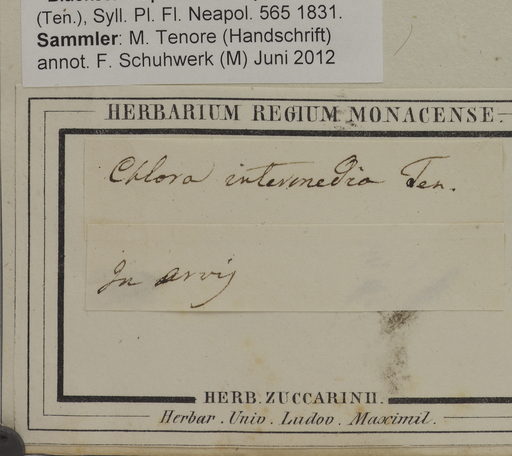 (Ten.), Syll. Pl. Fl. Neapol. 565 1831.
Sammler: M. Tenore (Handschrift)
annot. F. Schuhwerk (M) Juni 2012
HERBARIUM REGIUM MONACENSE.
Chlora intermedia Ten.
In arvis
HERB. ZUCCARINII.
Herbar. Univ. Ludov. Maximil.